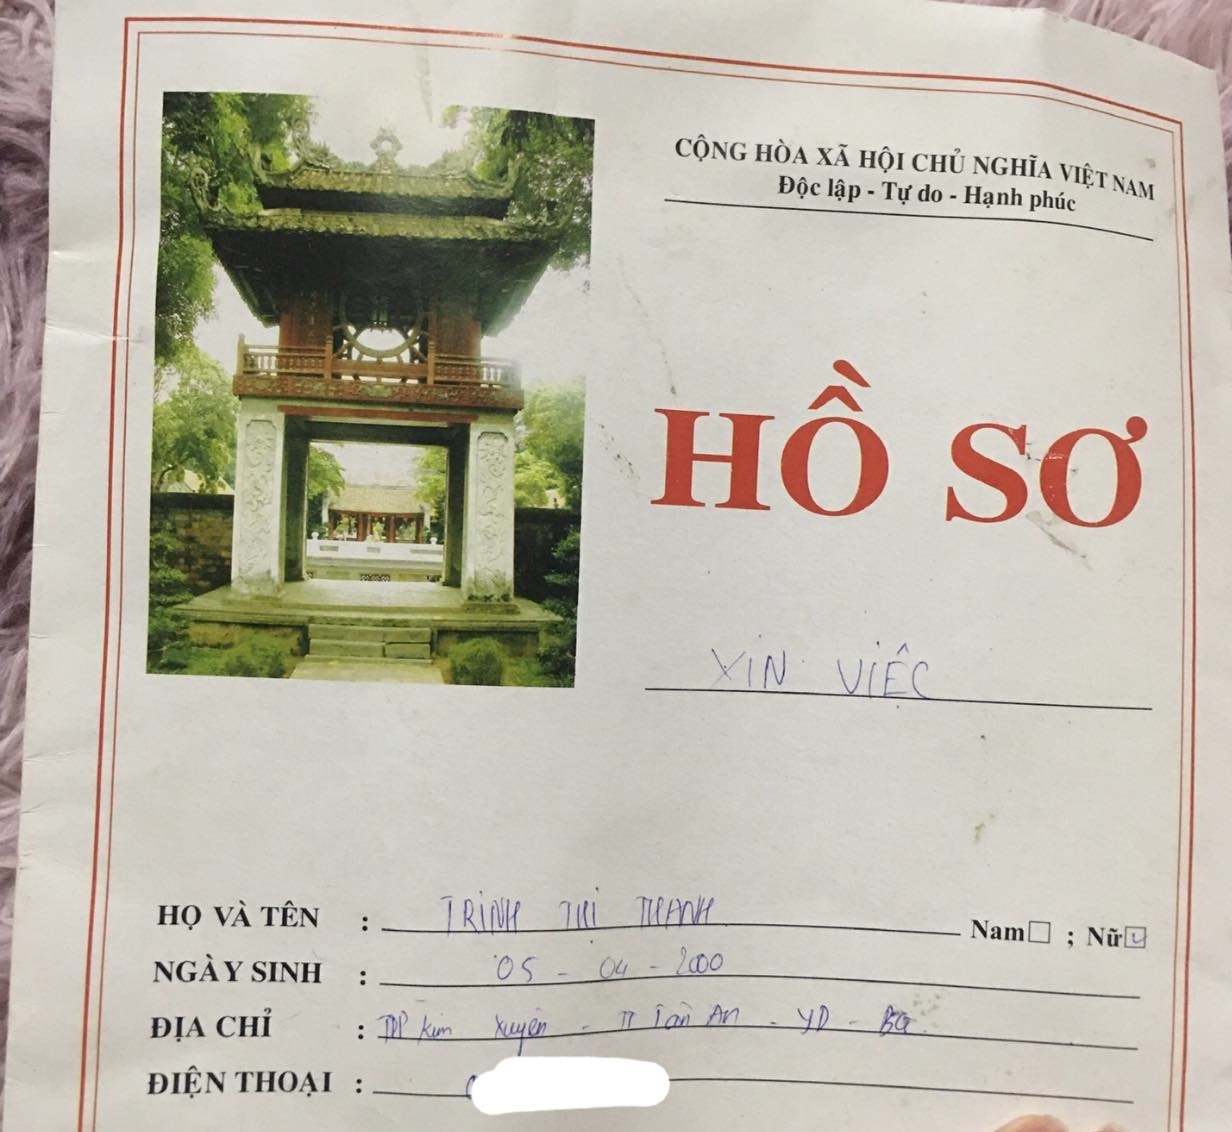 CỘNG HÒA XÃ HỘI CHỦ NGHĨA VIỆT NAM
Độc lập - Tự do - Hạnh phúc
HỒ SƠ
XIN VIỆC
HỌ VÀ TÊN : TRỊNH THỊ THANH Nam ; Nữ
NGÀY SINH : 05 - 04 - 2000
ĐỊA CHỈ : TDP Kim Xuyên - TT Tân An - YD - BG
ĐIỆN THOẠI :